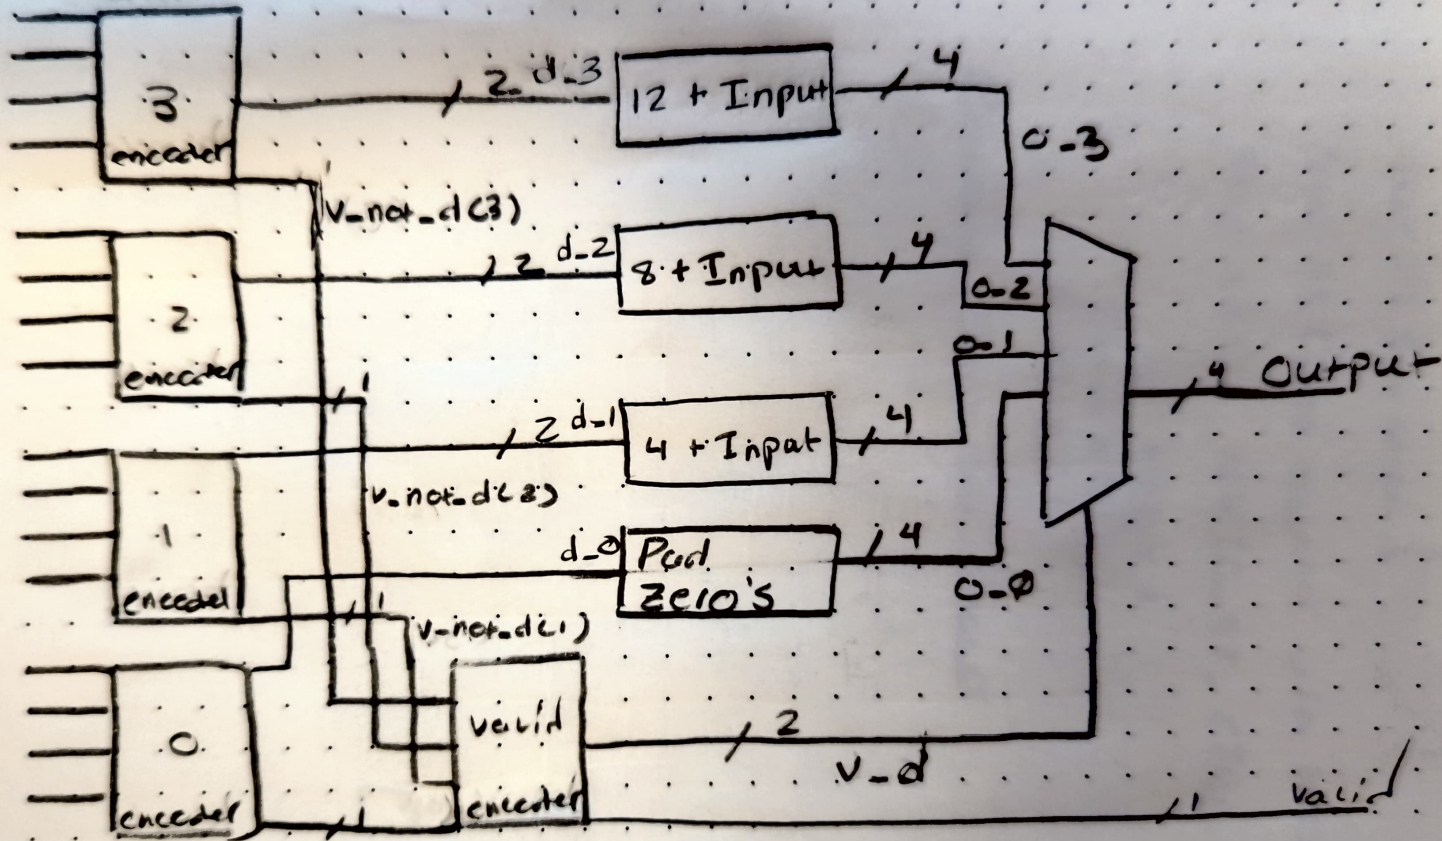 3
encoder
2 d_3
12 + Input
4
o_3
V_not_d(3)
2
encoder
2 d_2
8 + Input
4
o_2
1
o_1
4 Output
2 d_1
4 + Input
4
V_not_d(2)
1
encoder
d_0
Pad
Zero's
4
o_0
1
V_not_d(1)
0
encoder
1
valid
encoder
2
V_d
1 valid